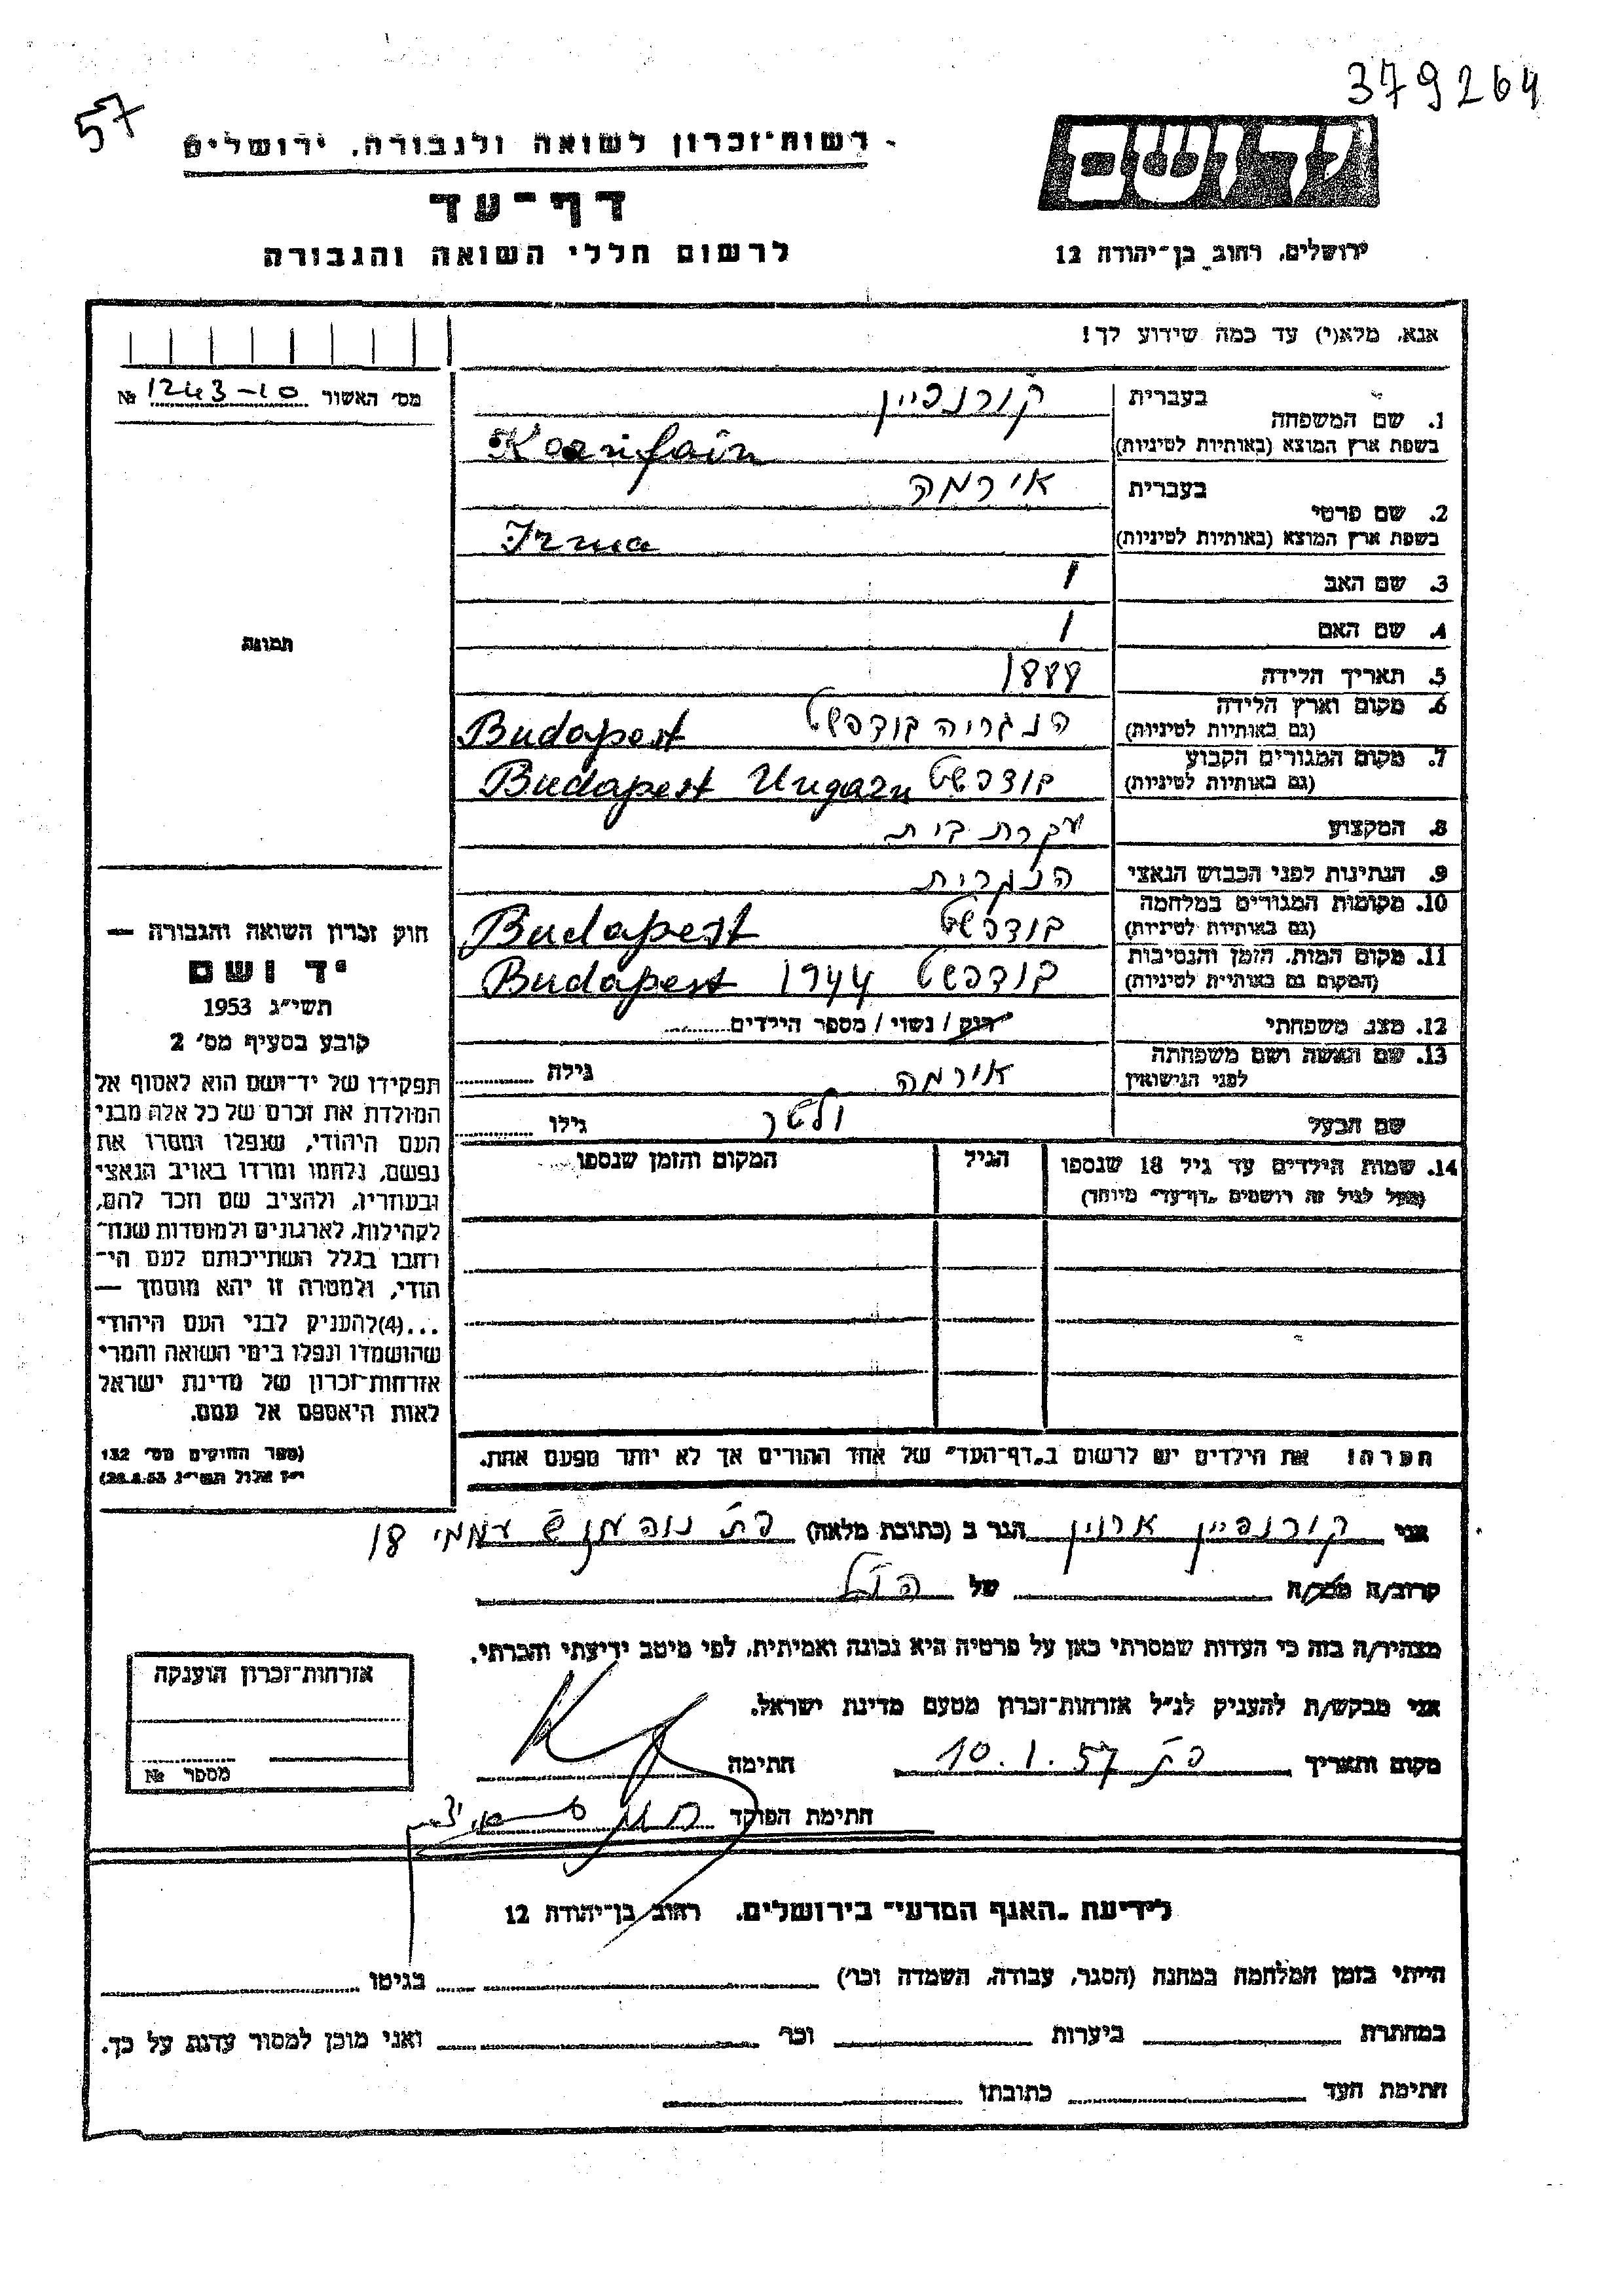 379264
57
רשות־זכרון לשואה ולגבורה, ירושלים
ידושם
דף־עד
לרשום חללי השואה והגבורה
ירושלים, רחוב בן־יהודה 12
אנא, מלא(י) עד כמה שידוע לך!
מס׳ האשור 1243-10 №
1. שם המשפחה
בעברית קורנפיין
בשפת ארץ המוצא (באותיות לטיניות)
2. שם פרטי
בעברית אירמה
בשפת ארץ המוצא (באותיות לטיניות) Irma
3. שם האב /
4. שם האם /
5. תאריך הלידה 1888
6. מקום וארץ הלידה (גם באותיות לטיניות) הנגריה בודפשט Budapest
7. מקום המגורים הקבוע (גם באותיות לטיניות) בודפשט Budapest Ungarn
8. המקצוע עקרת בית
9. הנתינות לפני הכבוש הנאצי הנגרית
10. מקומות המגורים במלחמה (גם באותיות לטיניות) בודפשט Budapest
11. מקום המות, הזמן והנסיבות (המקום גם באותיות לטיניות) בודפשט 1944 Budapest
12. מצב משפחתי רווק / נשוי / מספר הילדים
13. שם האשה ושם משפחתה לפני הנישואין אירמה גילה
שם הבעל ולטר גילו
14. שמות הילדים עד גיל 18 שנספו
(מעל לגיל זה רושמים „דף־עד״ מיוחד)
הגיל
המקום והזמן שנספו
הערה! את הילדים יש לרשום ב„דף־העד״ של אחד ההורים אך לא יותר מפעם אחת.
תמונה
חוק זכרון השואה והגבורה —
יד ושם
תשי״ג 1953
קובע בסעיף מס׳ 2
תפקידו של יד־ושם הוא לאסוף אל
המולדת את זכרם של כל אלה מבני
העם היהודי, שנפלו ומסרו את
נפשם, נלחמו ומרדו באויב הנאצי
ובעוזריו, ולהציב שם וזכר להם,
לקהילות, לארגונים ולמוסדות שנח־
רבו בגלל השתייכותם לעם הי־
הודי, ולמטרה זו יהא מוסמך —
...(4)להעניק לבני העם היהודי
שהושמדו ונפלו בימי השואה והמרי
אזרחות־זכרון של מדינת ישראל
לאות היאספם אל עמם.
(ספר החוקים מס׳ 132
י״ז אלול תשי״ג 28.8.53)
אני קורנפיין ארוין הגר ב (כתובת מלאה) עממי 18
קרוב/ה מכר/ה של הנ״ל
מצהיר/ה בזה כי העדות שמסרתי כאן על פרטיה היא נכונה ואמיתית, לפי מיטב ידיעתי והכרתי.
אני מבקש/ת להעניק לנ״ל אזרחות־זכרון מטעם מדינת ישראל.
מקום ותאריך פ״ת 10.1.57 חתימה
חתימת הפוקד
אזרחות־זכרון הוענקה
מספר №
לידיעת „האגף המדעי״ בירושלים, רחוב בן־יהודה 12
הייתי בזמן המלחמה במחנה (הסגר, עבודה, השמדה וכו׳) בגיטו
במחתרת ביערות וכו׳ ואני מוכן למסור עדות על כך.
חתימת העד כתובתו